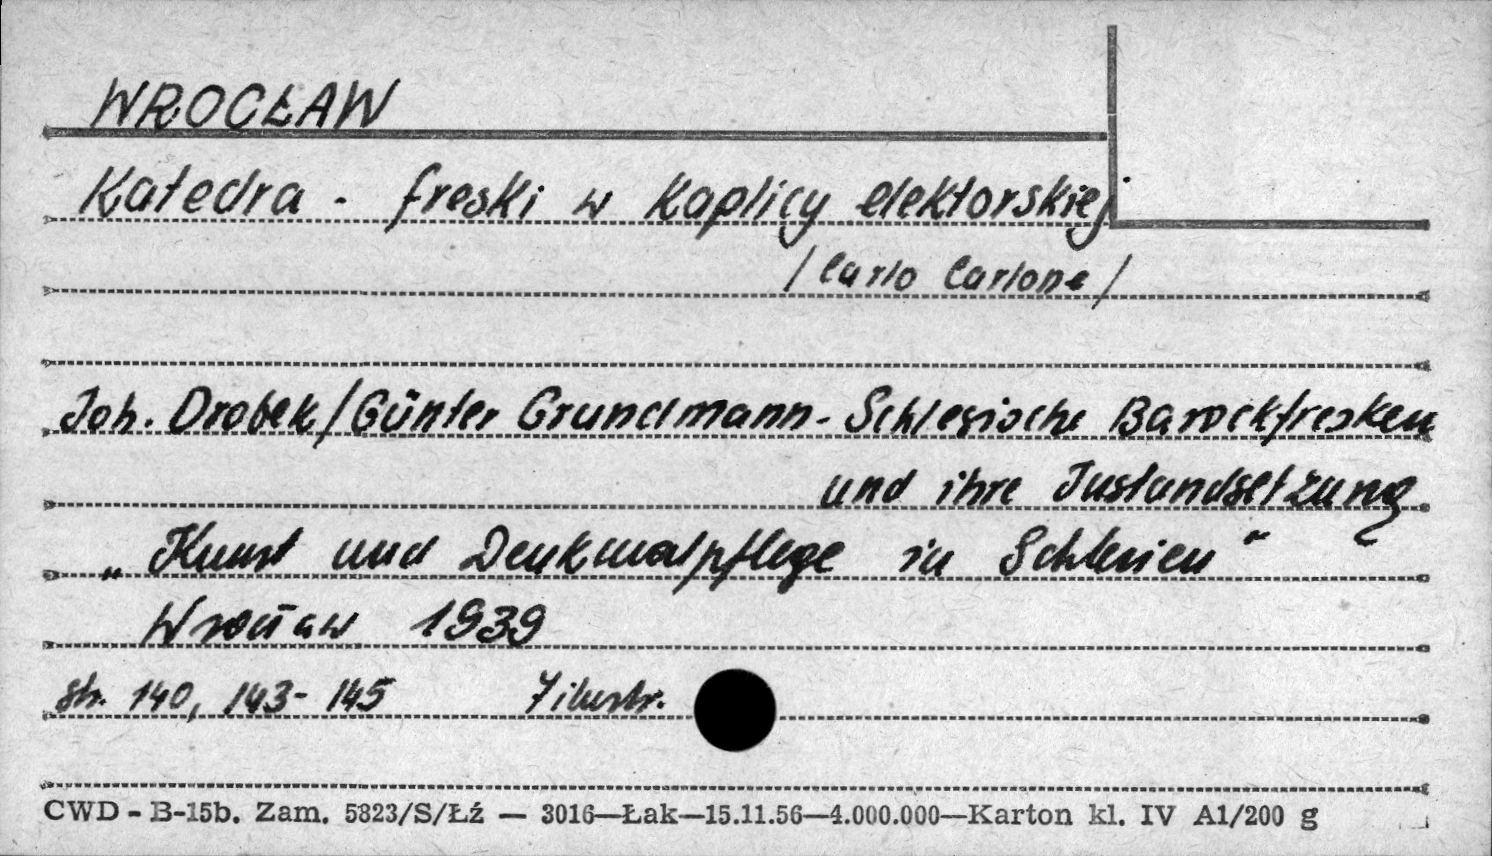 WROCŁAW
Katedra - freski w kaplicy elektorskiej
/Carlo Carlone/
Joh. Drobek/Günter Grundmann - Schlesische Barockfresken
und ihre Instandsetzung
„Kunst und Denkmalpflege in Schlesien"
Wrocław 1939
str. 140, 143-145 7 ilustr.
CWD - B-15b. Zam. 5823/S/Łź — 3016—Łak—15.11.56—4.000.000—Karton kl. IV A1/200 g